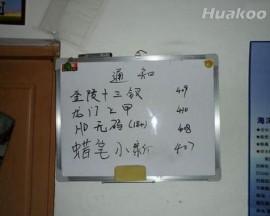 Huakoo
通知
金陵十三钗 409
龙门飞甲 410
HD无码(18+) 408
蜡笔小新 407
海